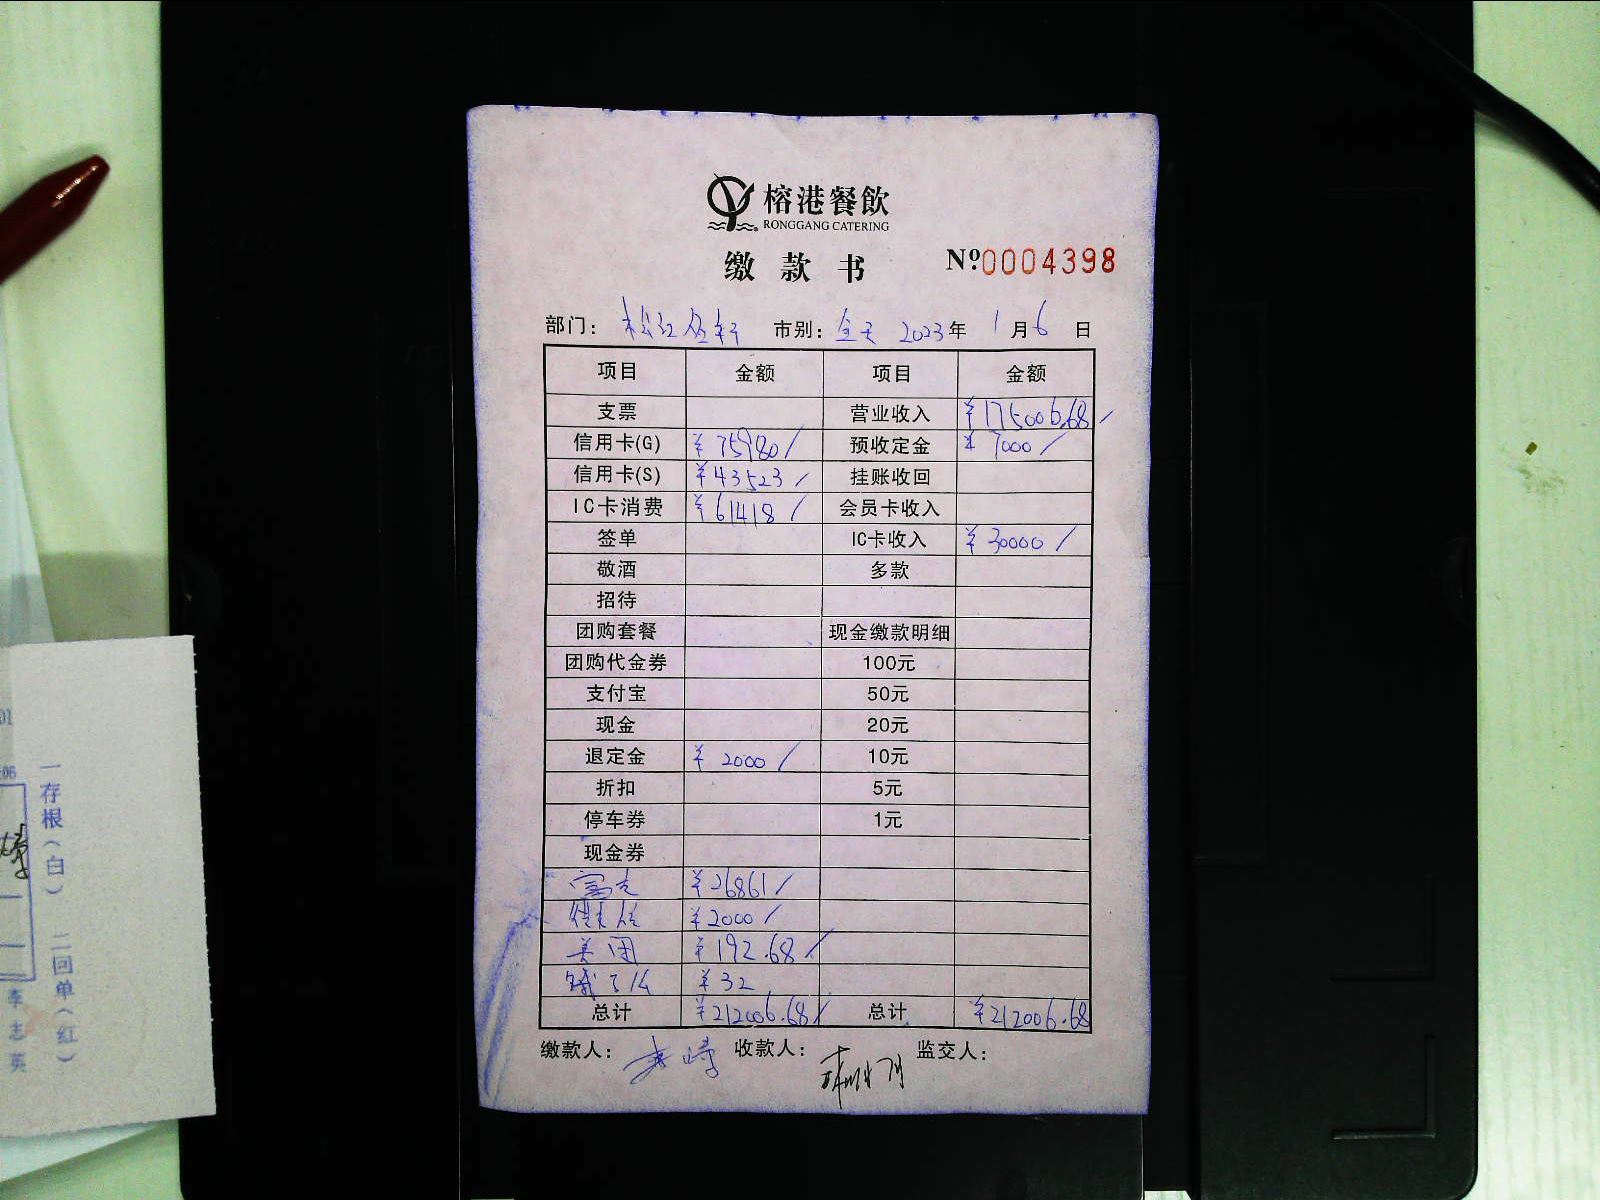 榕港餐飲
RONGGANG CATERING
缴款书 Nº0004398
部门: 松江金轩 市别: 全天 2023年 1月6日
项目 金额 项目 金额
支票 营业收入 ¥175006.68
信用卡(G) ¥75980 预收定金 ¥7000
信用卡(S) ¥43523 挂账收回
IC卡消费 ¥61418 会员卡收入
签单 IC卡收入 ¥30000
敬酒 多款
招待
团购套餐 现金缴款明细
团购代金券 100元
支付宝 50元
现金 20元
退定金 ¥2000 10元
折扣 5元
停车券 1元
现金券
富友 ¥26861
¥2000
美团 ¥192.68
饿了么 ¥32
总计 ¥212006.68 总计 ¥212006.68
缴款人: 收款人: 监交人:
一存根(白) 二回单(红)
李志英